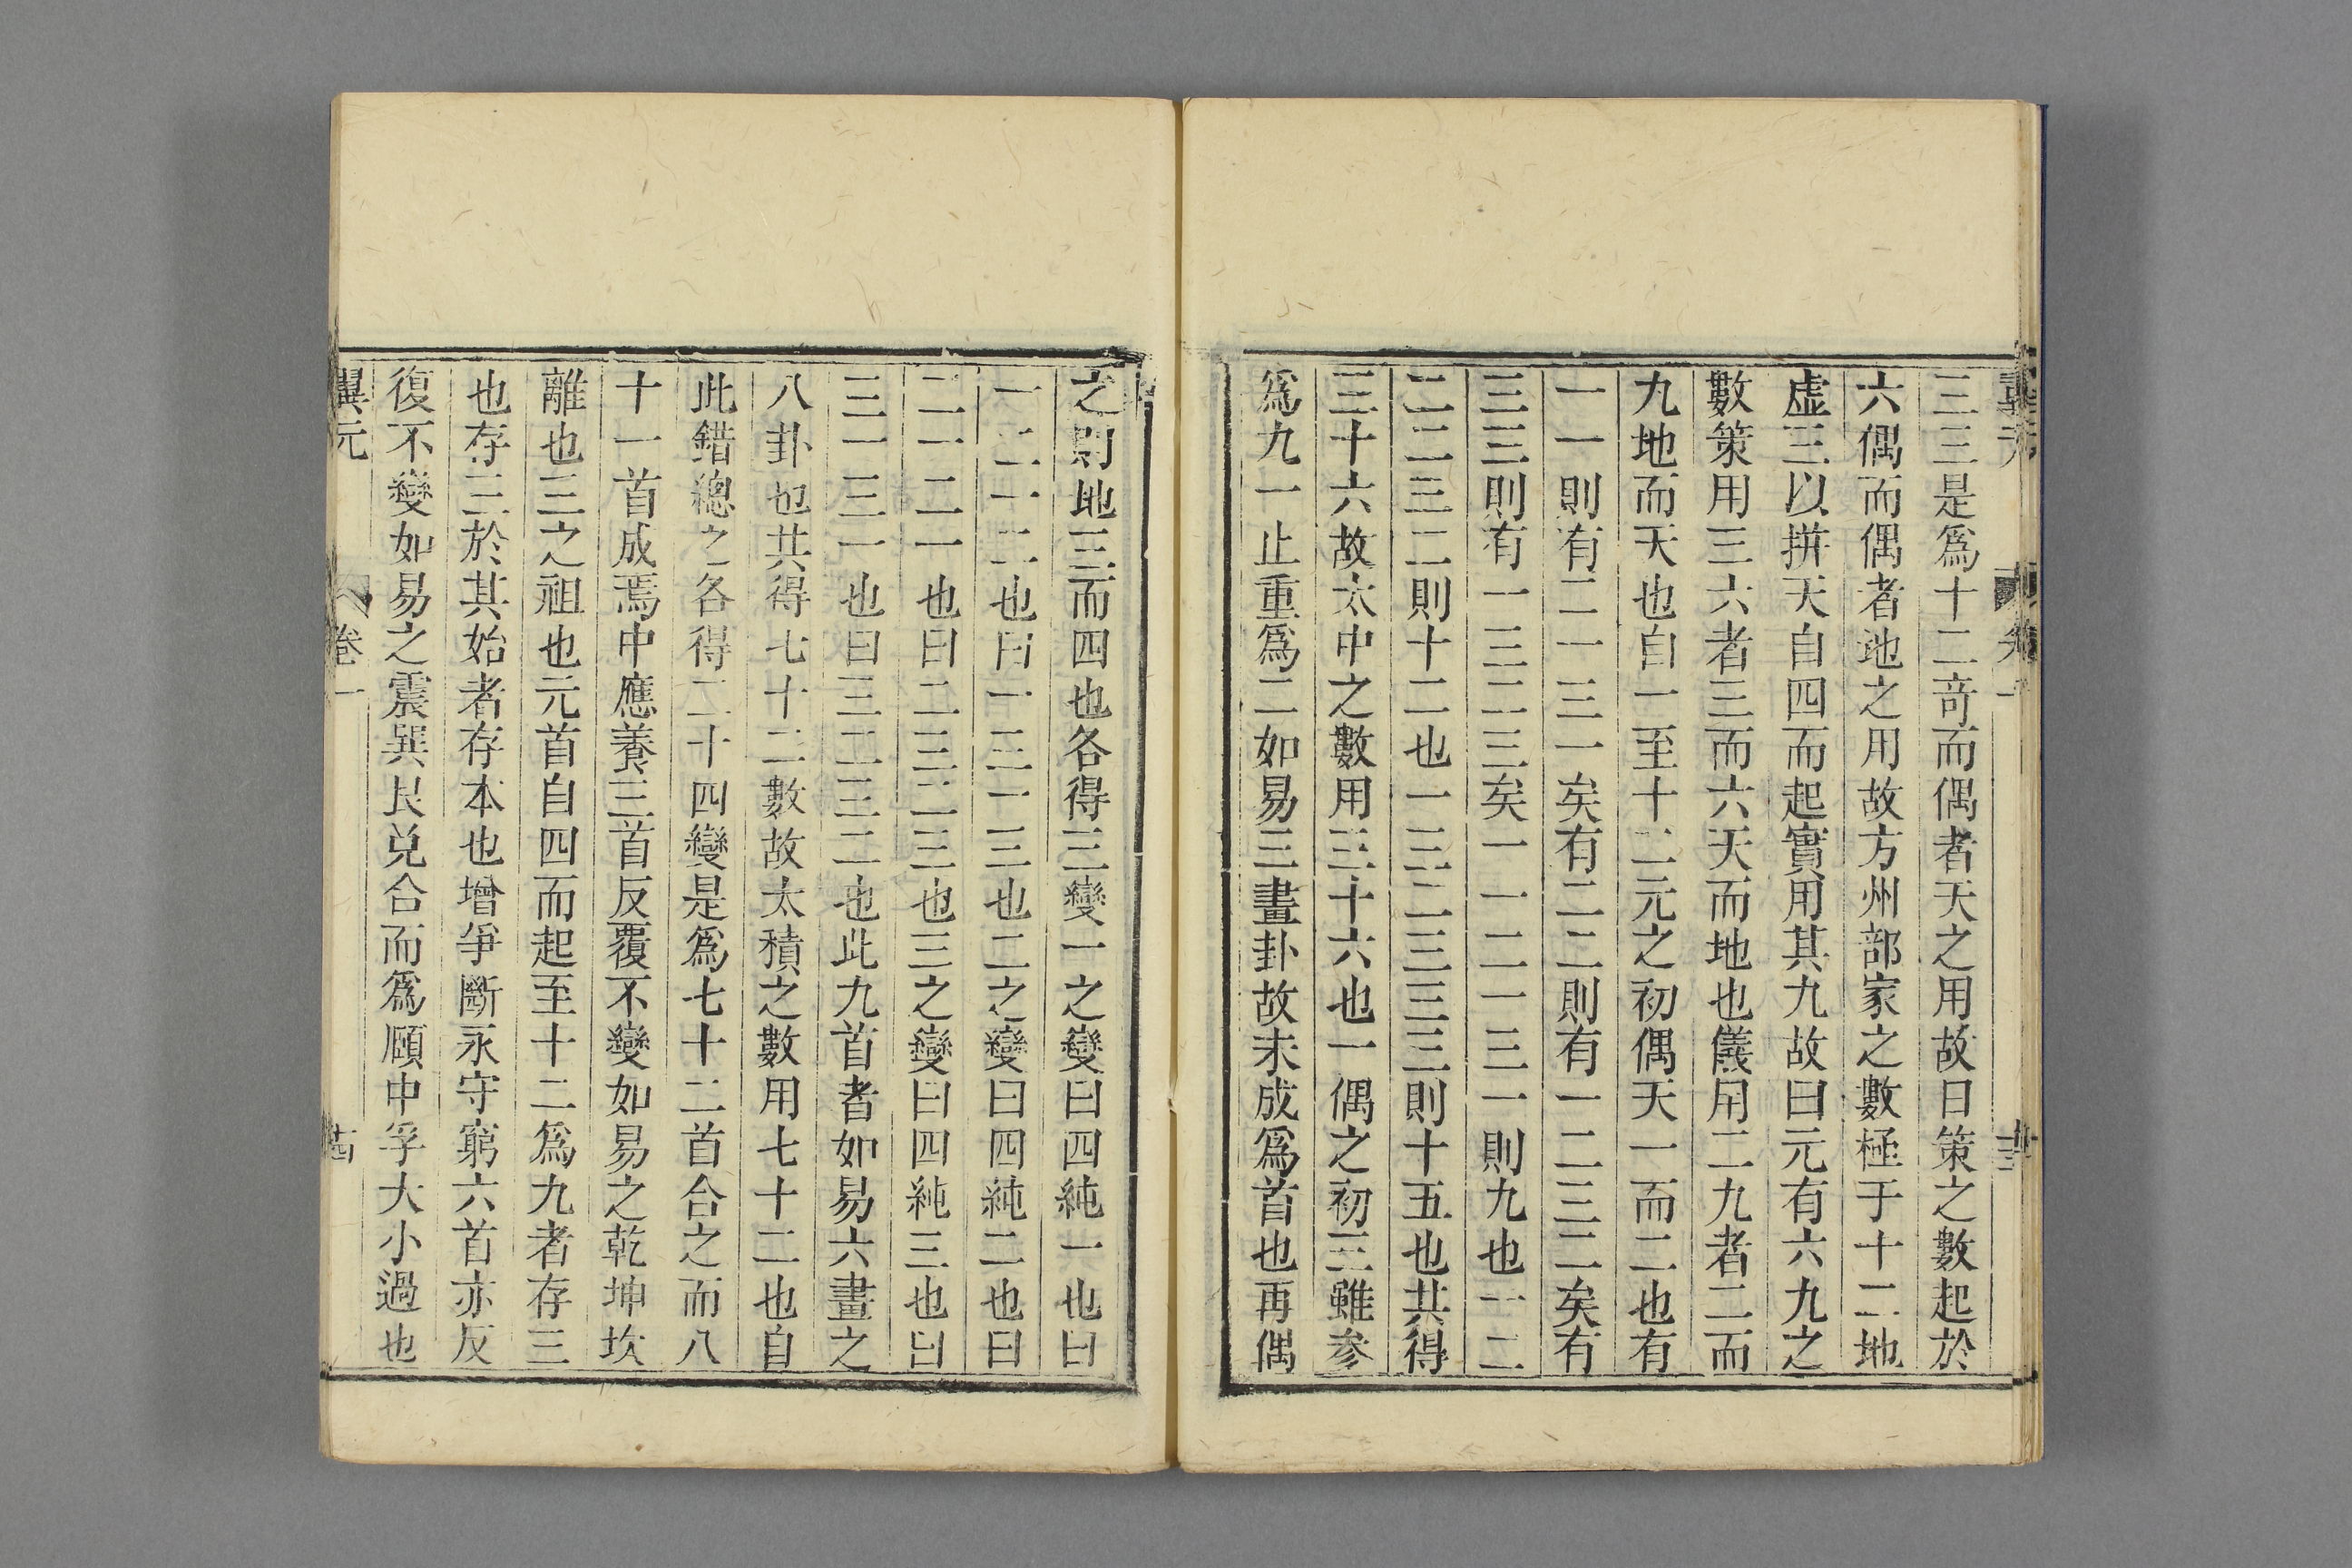 三三是爲十二奇而偶者天之用故曰策之數起於
六偶而偶者地之用故方州部家之數極于十二地
虛三以拼天自四而起實用其九故曰元有六九之
數策用三六者三而六天而地也儀用二九者二而
九地而天也自一至十二元之初偶天一而二也有
一一則有二一三一矣有二二則有一二三二矣有
三三則有一三二三矣一一二一三一則九也一二
二二三二則十二也一三二三三三則十五也共得
三十六故太中之數用三十六也一偶之初三雖參
爲九一止重爲二如易三畫卦故未成爲首也再偶
之則地三而四也各得三變一之變曰四純一也曰
一二一二也曰一三一三也二之變曰四純二也曰
二一二一也曰二三二三也三之變曰四純三也曰
三一三一也曰三二三二也此九首者如易六畫之
八卦也共得七十二數故太積之數用七十二也自
此錯總之各得二十四變是爲七十二首合之而八
十一首成焉中應養三首反覆不變如易之乾坤坎
離也三之祖也元首自四而起至十二爲九者存三
也存三於其始者存本也增爭斷永守窮六首亦反
復不變如易之震巽艮兌合而爲頤中孚大小過也
翼元
卷一